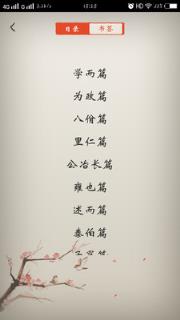 目录 书签
学而篇
为政篇
八佾篇
里仁篇
公冶长篇
雍也篇
述而篇
泰伯篇